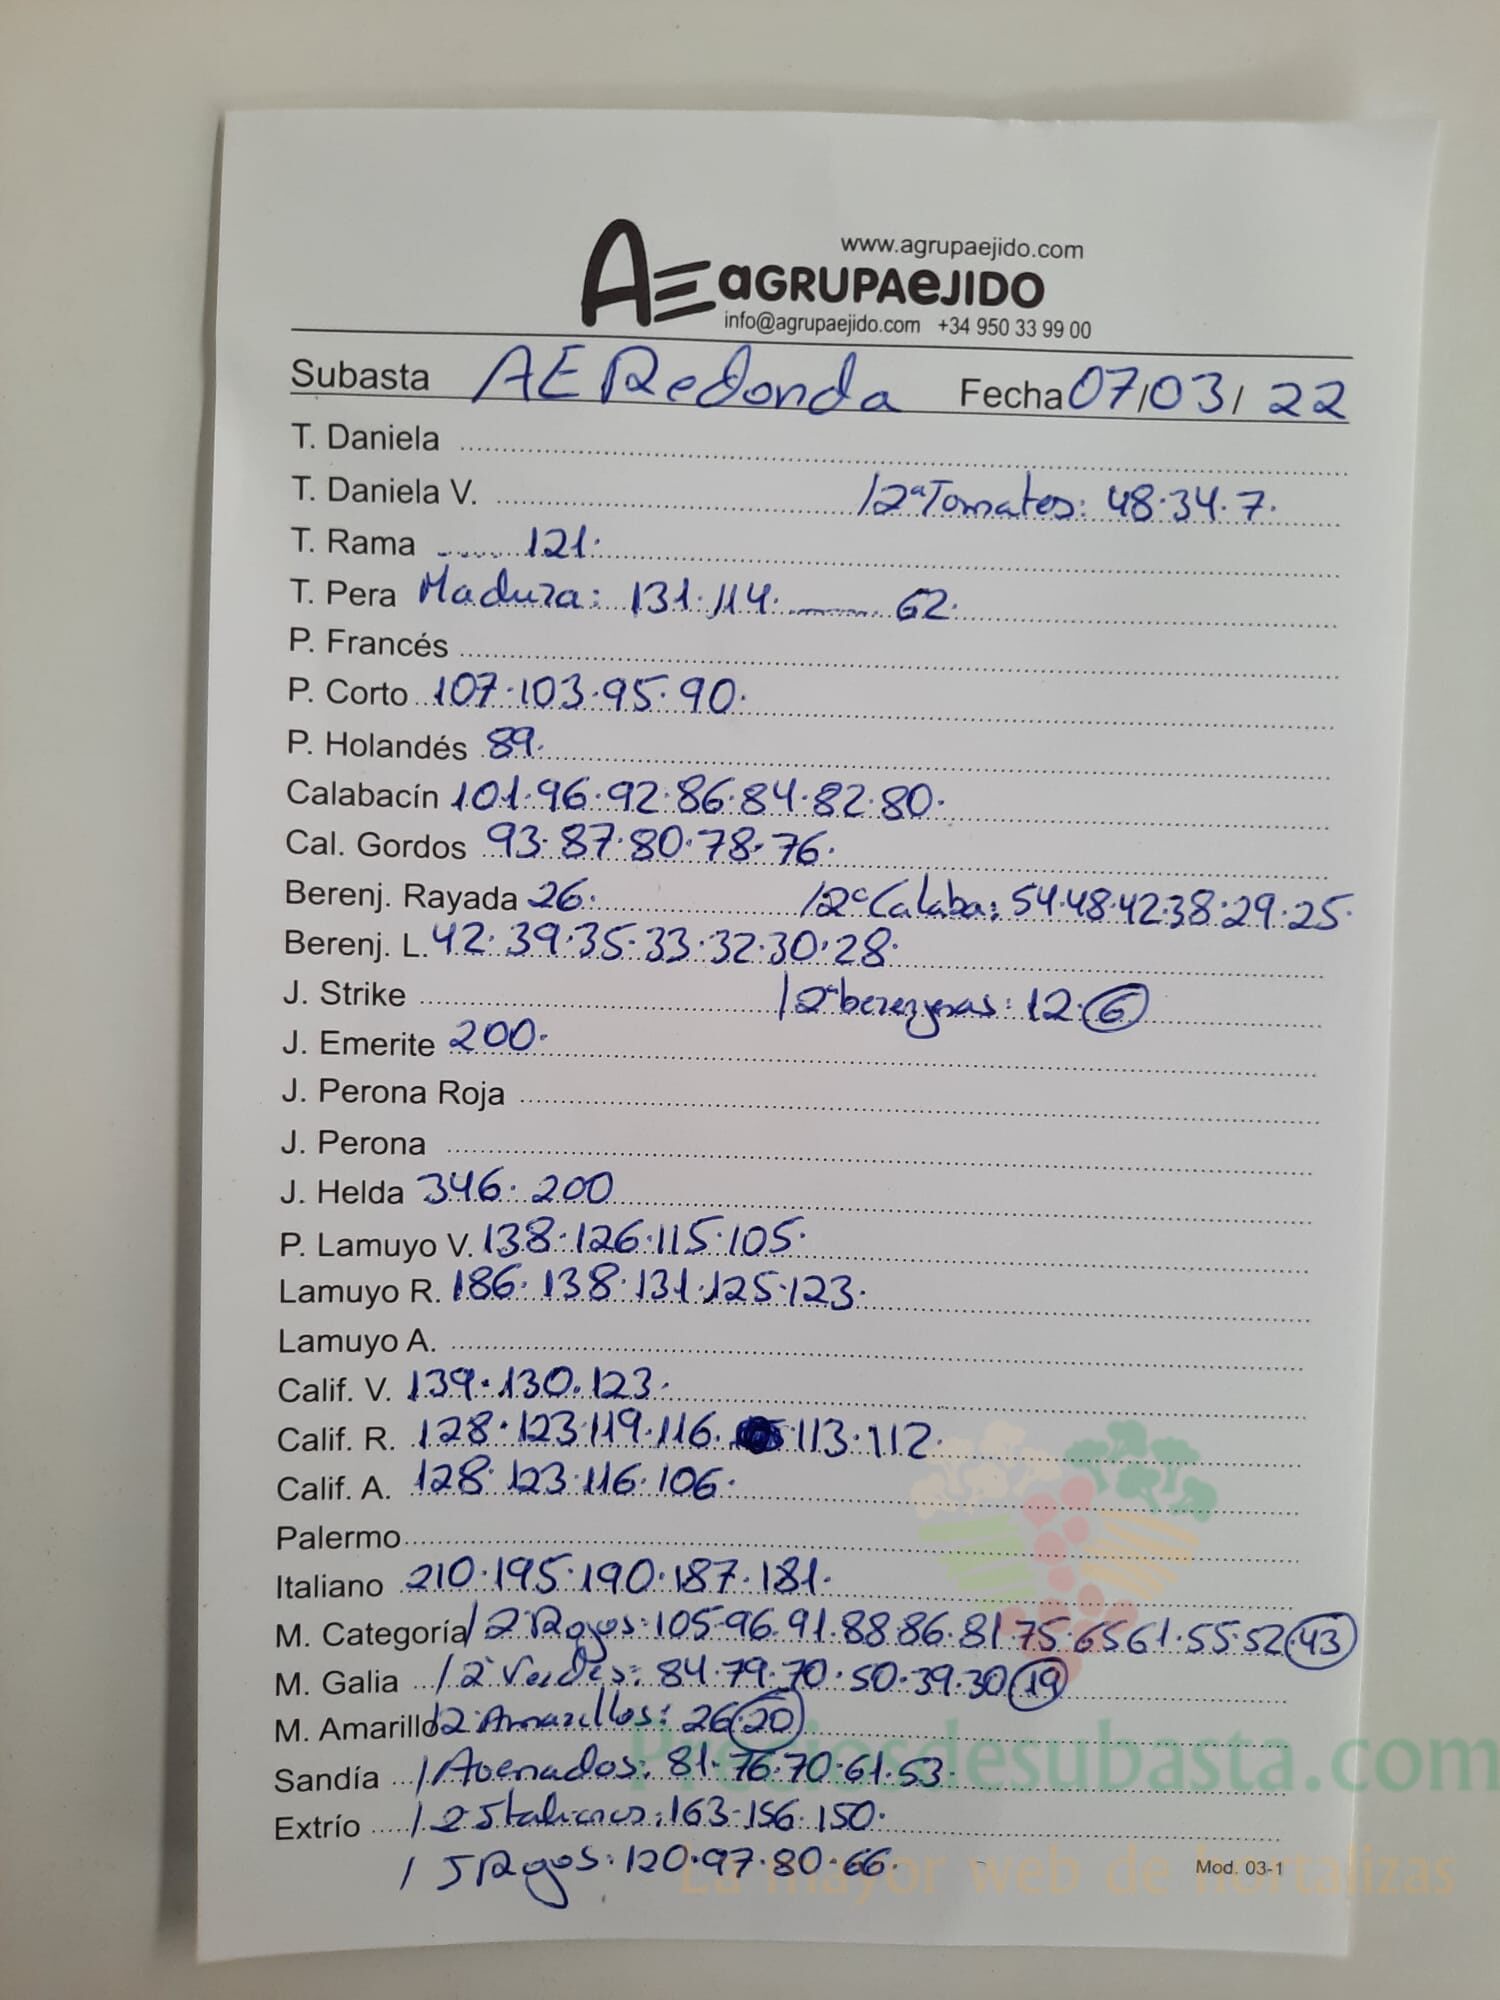 www.agrupaejido.com
AE aGRUPAeJIDO
info@agrupaejido.com +34 950 33 99 00
Subasta AE Redonda Fecha 07/03/22
T. Daniela
T. Daniela V. /2ª Tomates: 48.34.7.
T. Rama ...... 121.
T. Pera Madura: 131.114. ........ 62.
P. Francés
P. Corto 107.103.95.90.
P. Holandés 89.
Calabacín 101.96.92.86.84.82.80.
Cal. Gordos 93.87.80.78.76.
Berenj. Rayada 26. /2ª Calaba: 54.48.42.38.29.25.
Berenj. L. 42.39.35.33.32.30.28.
J. Strike /2ª berenjenas: 12.6
J. Emerite 200.
J. Perona Roja
J. Perona
J. Helda 346.200
P. Lamuyo V. 138.126.115.105.
Lamuyo R. 186.138.131.125.123.
Lamuyo A.
Calif. V. 139.130.123.
Calif. R. 128.123.119.116. 113.112.
Calif. A. 128.123.116.106.
Palermo
Italiano 210.195.190.187.181.
M. Categoría /2ª Rojos: 105.96.91.88.86.81.75.65.61.55.52.43
M. Galia /2ª Verdes: 84.79.70.50.39.30.19
M. Amarillo /2 Amarillos: 26.20
Sandía /Asenados: 81.76.70.61.53.
Extrío /2 Italianos: 163.156.150.
/ I Rojos: 120.97.80.66.
Mod. 03-1
Preciosdesubasta.com
La mayor web de hortalizas